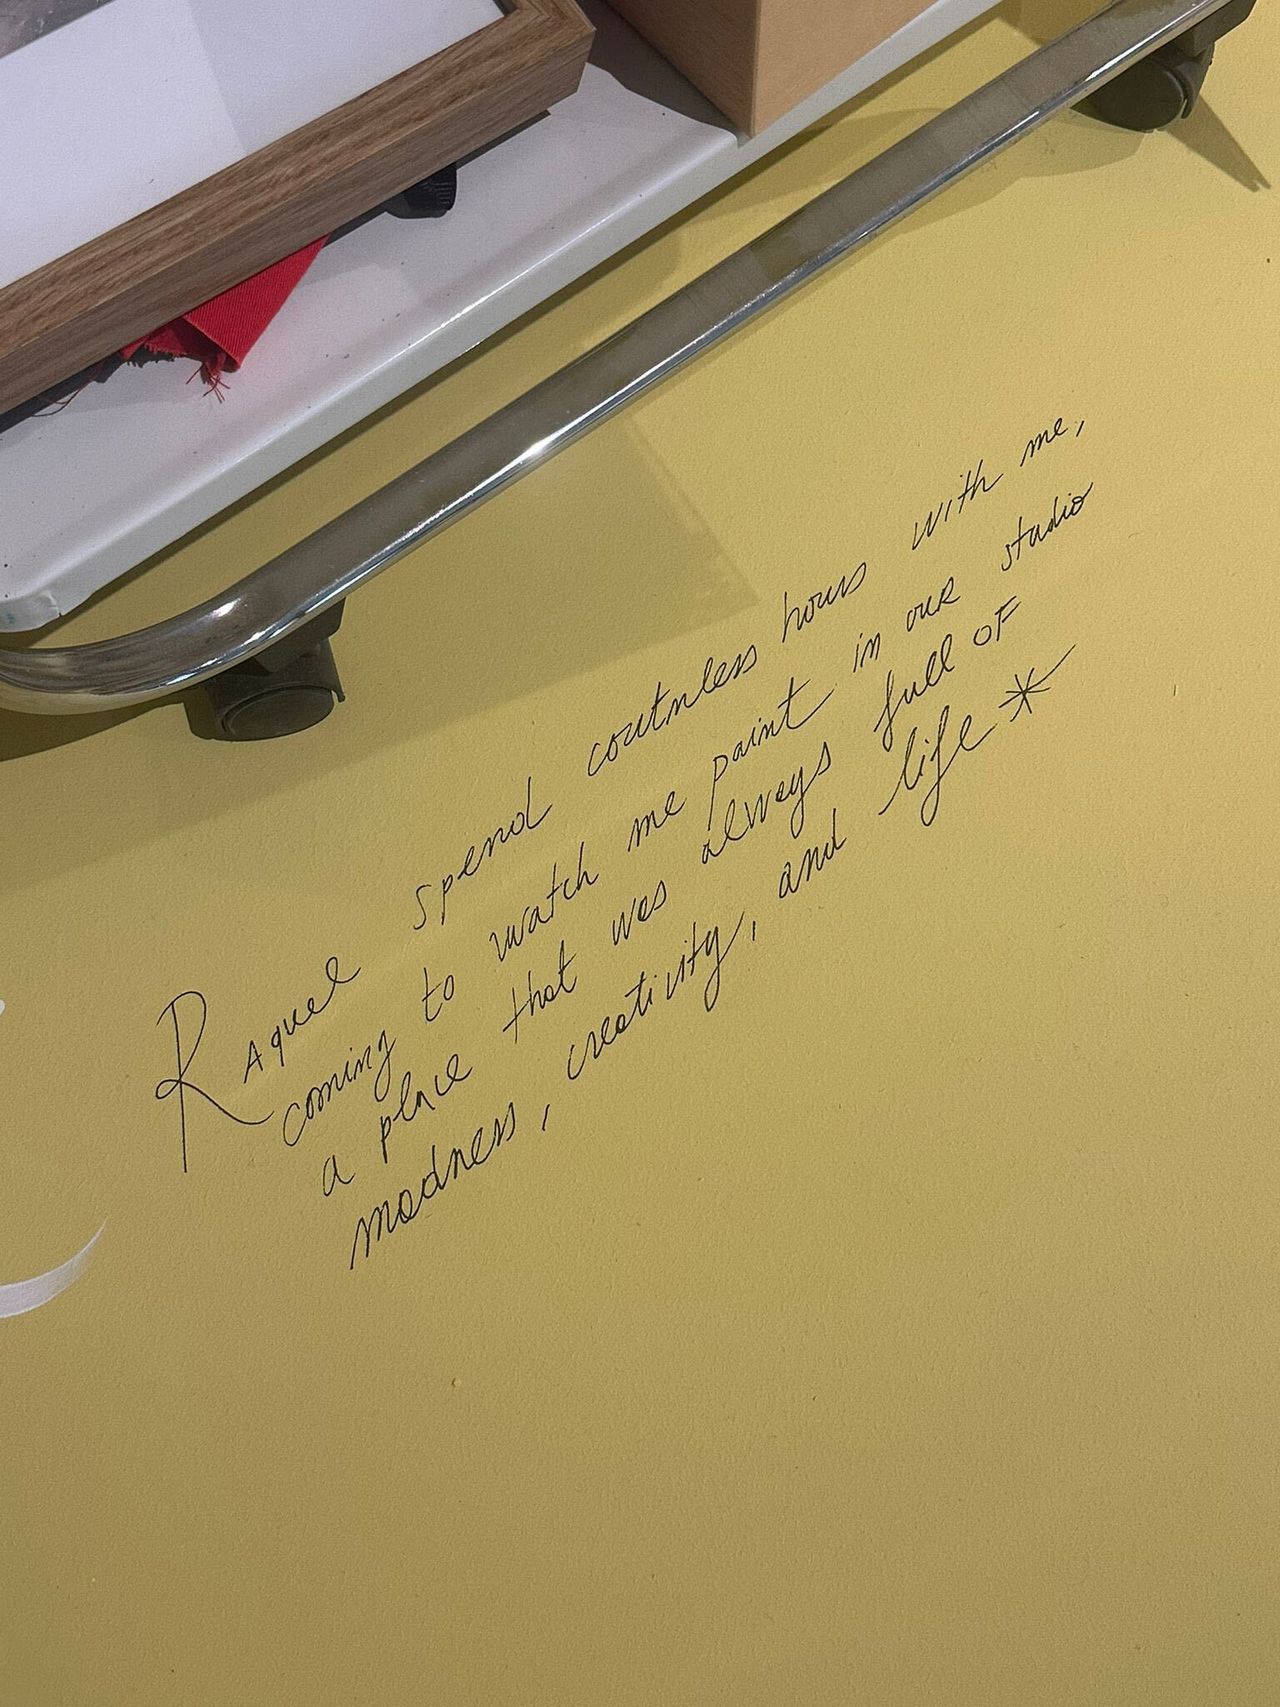 Raquel spend coutnless hours with me,
coming to watch me paint in our studio
a place that was always full of
madness, creativity, and life *